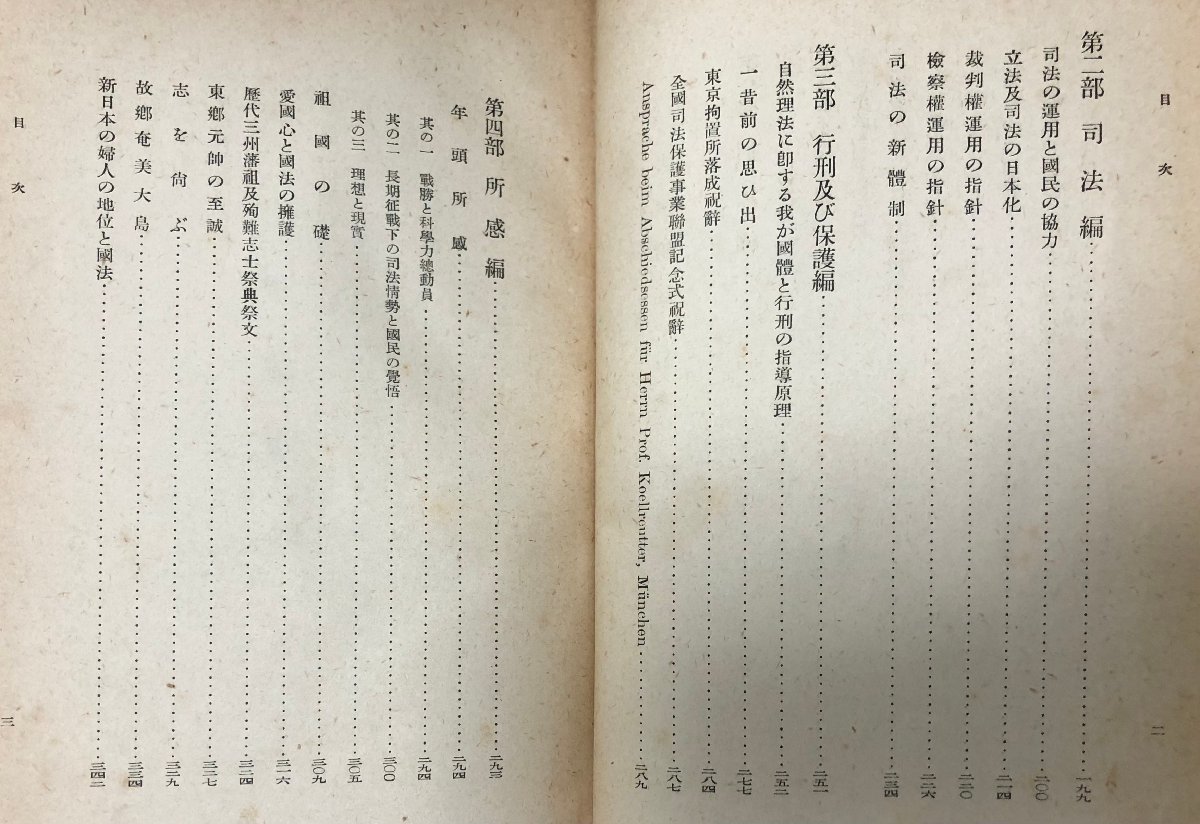 目次
第二部 司法編……一九九
司法の運用と國民の協力……二〇〇
立法及司法の日本化……二一四
裁判權運用の指針……二二〇
檢察權運用の指針……二二六
司法の新體制……二三四
第三部 行刑及び保護編……二五一
自然理法に卽する我が國體と行刑の指導原理……二五二
一昔前の思ひ出……二七七
東京拘置所落成祝辭……二八四
全國司法保護事業聯盟記念式祝辭……二八七
Ansprache beim Abschiedsessen für Herrn Prof. Koellreutter, München……二八九
二
第四部 所感編……二九三
年頭所感……二九四
其の一 戰勝と科學力總動員……二九四
其の二 長期征戰下の司法情勢と國民の覺悟……三〇〇
其の三 理想と現實……三〇五
祖國の礎……三〇九
愛國心と國法の擁護……三一六
歷代三州藩祖及殉難志士祭典祭文……三二四
東鄕元帥の至誠……三二七
志を尙ぶ……三二九
故鄕奄美大島……三三四
新日本の婦人の地位と國法……三四二
目次
三